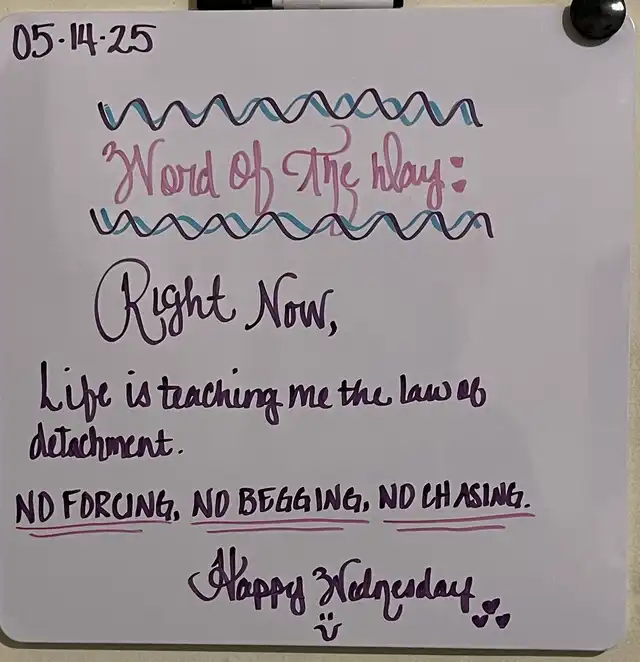 05-14-25
Word of The Day:
Right Now,
Life is teaching me the law of
detachment.
NO FORCING, NO BEGGING, NO CHASING.
Happy Wednesday